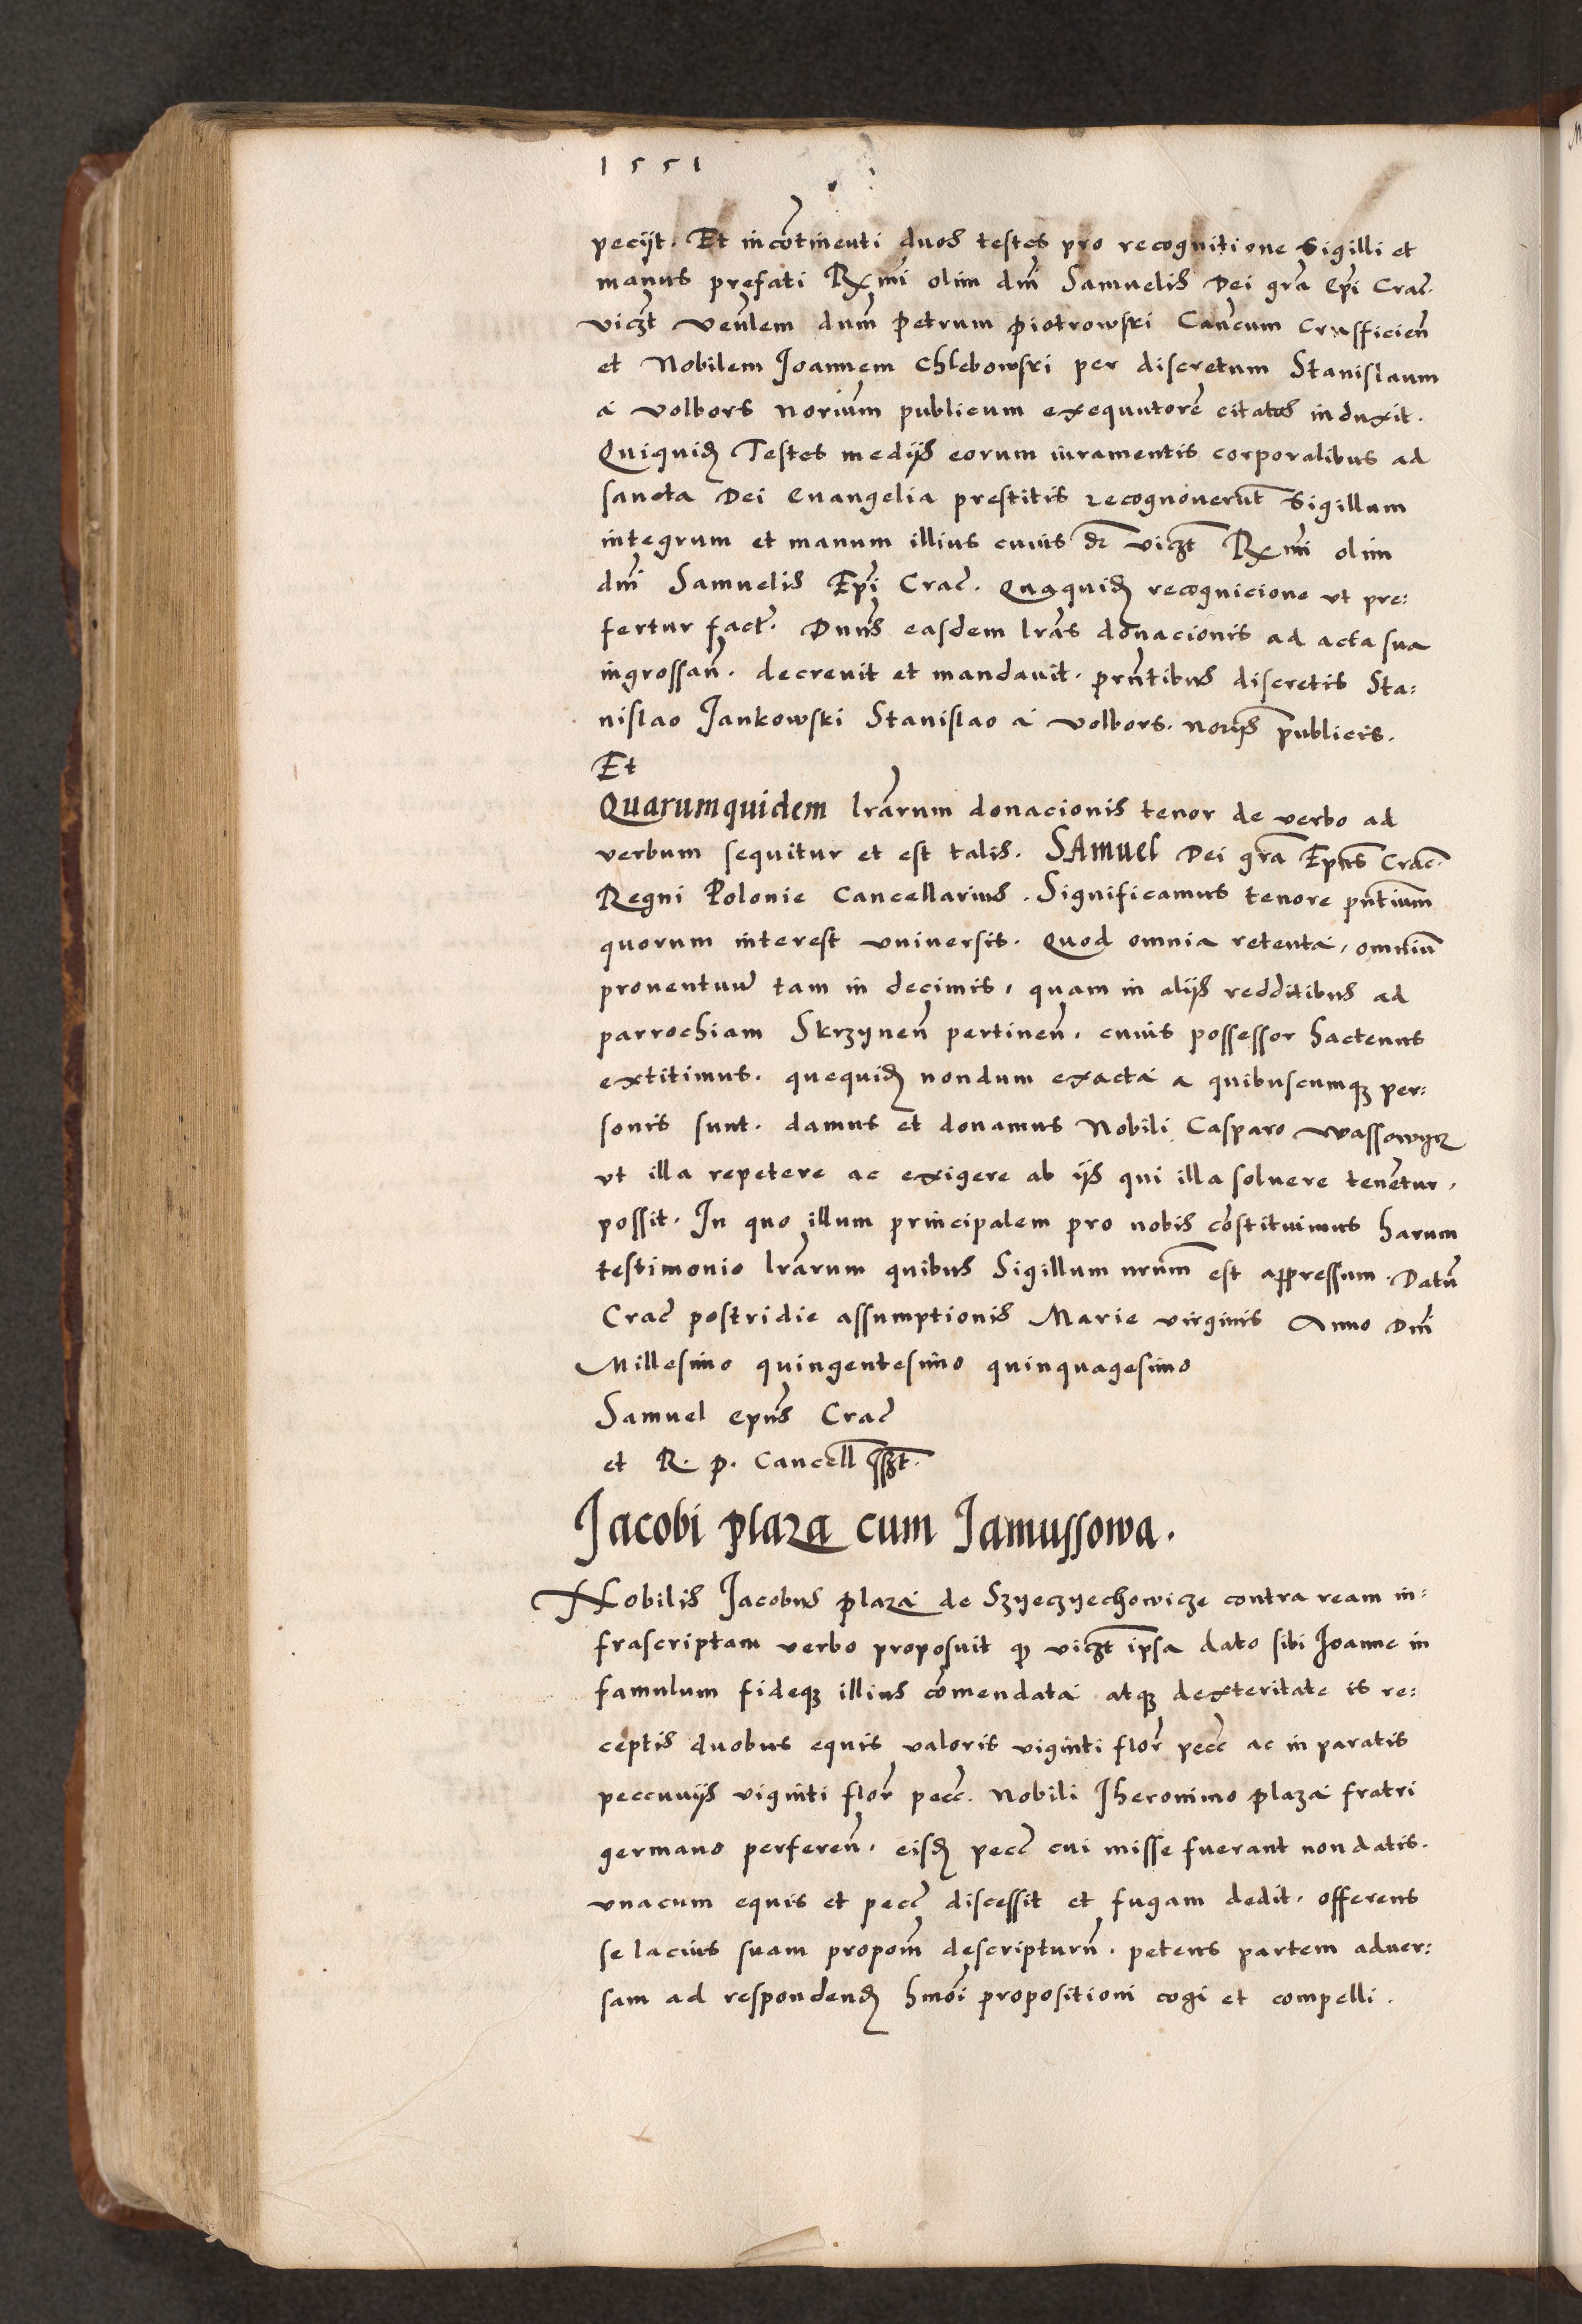 1551
pecijt. Et incōtinenti duos testes pro recognitione Sigilli et
manus prefati Rx̄mi olim dn̄i Samuelis Dei grā Ep̄i Crac̄.
viczt ven̄lem dum̄ Petrum Piotrowski Can̄cum Crusficien̄
et Nobilem Joannem Chlebowski per discretum Stanislaum
á Volbors norium̄ publicum exequutorē citatos induxit.
Quiquidꝫ Testes medijs eorum iuramentis corporalibus ad
sancta Dei Euangelia prestitis recognouerūt Sigillum
integrum et manum illius cuius dr̄ viczt Rx̄mi olim
dn̄i Samuelis Ep̄i Crac̄. Quaquidꝫ recognicione vt pre:
fertur fact̄. Dnūs easdem lrās donacionis ad acta sua
ingrossan̄. decreuit et mandauit. prn̄tibus discretis Sta:
nislao Jankowski Stanislao á Volbors. norijs publicis.
Et
Quarumquidem lrārum donacionis tenor de verbo ad
verbum sequitur et est talis. SAmuel Dei grā Epūs Crac̄.
Regni Polonie Cancellarius. Significamus tenore pn̄tium
quorum interest vniuersis. Quod omnia retentá, omniū
prouentuum̄ tam in decimis, quam in alijs redditibus ad
parrochiam Skrzynen̄ pertinen̄. cuius possessor hactenus
extitimus. quequidꝫ nondum exactá a quibuscumqꝫ per:
sonis sunt. damus et donamus Nobili Casparo Wassowycz
vt illa repetere ac exigere ab ijs qui illa soluere tenētur,
possit. In quo illum principalem pro nobis cōstituimus harum
testimonio lrārum quibus Sigillum nrūm est appressum. Datū
Crac̄ postridie assumptionis Marie virginis Anno Dn̄i
Millesimo quingentesimo quinquagesimo
Samuel epūs Crac̄
et R. p. Cancell̄ sszt.
Jacobi plaza cum Jamussowa.
Nobilis Jacobus plazá de Szyeczyechowicze contra ream in:
frascriptam verbo proposuit qꝫ viczt ipsa dato sibi Joanne in
famulum fideqꝫ illius cōmendatá atqꝫ dexteritate is re:
ceptis duobus equis valoris viginti flor̄ pecc̄ ac in paratis
peccunijs viginti flor̄ pecc̄. Nobili Jheronimo plazá fratri
germano perferen̄. eisdꝫ pecc̄ cui misse fuerant non datis.
vnacum equis et pecc̄ discessit et fugam dedit. offerens
se lacius suam propom̄ descripturn̄. petens partem aduer:
sam ad respondendꝫ hmōi propositioni cogi et compelli.